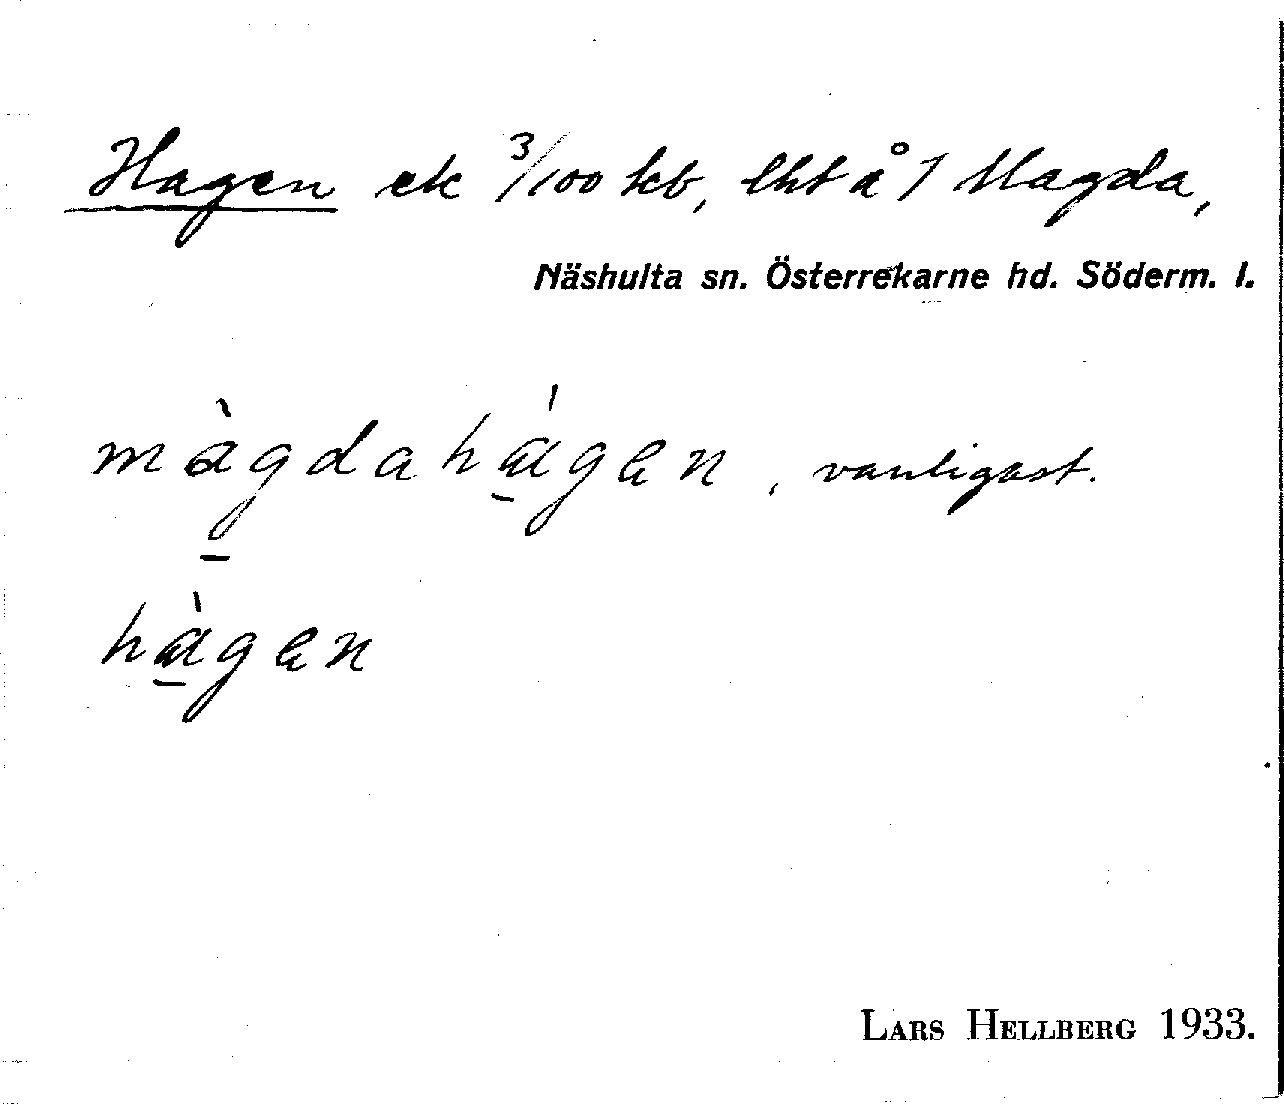 Hagen ek 3/100 kb, lht å 1 Magda,
Näshulta sn. Österrekarne hd. Söderm. l.
màgdahàgen, vanligast.
hàgen
LARS HELLBERG 1933.